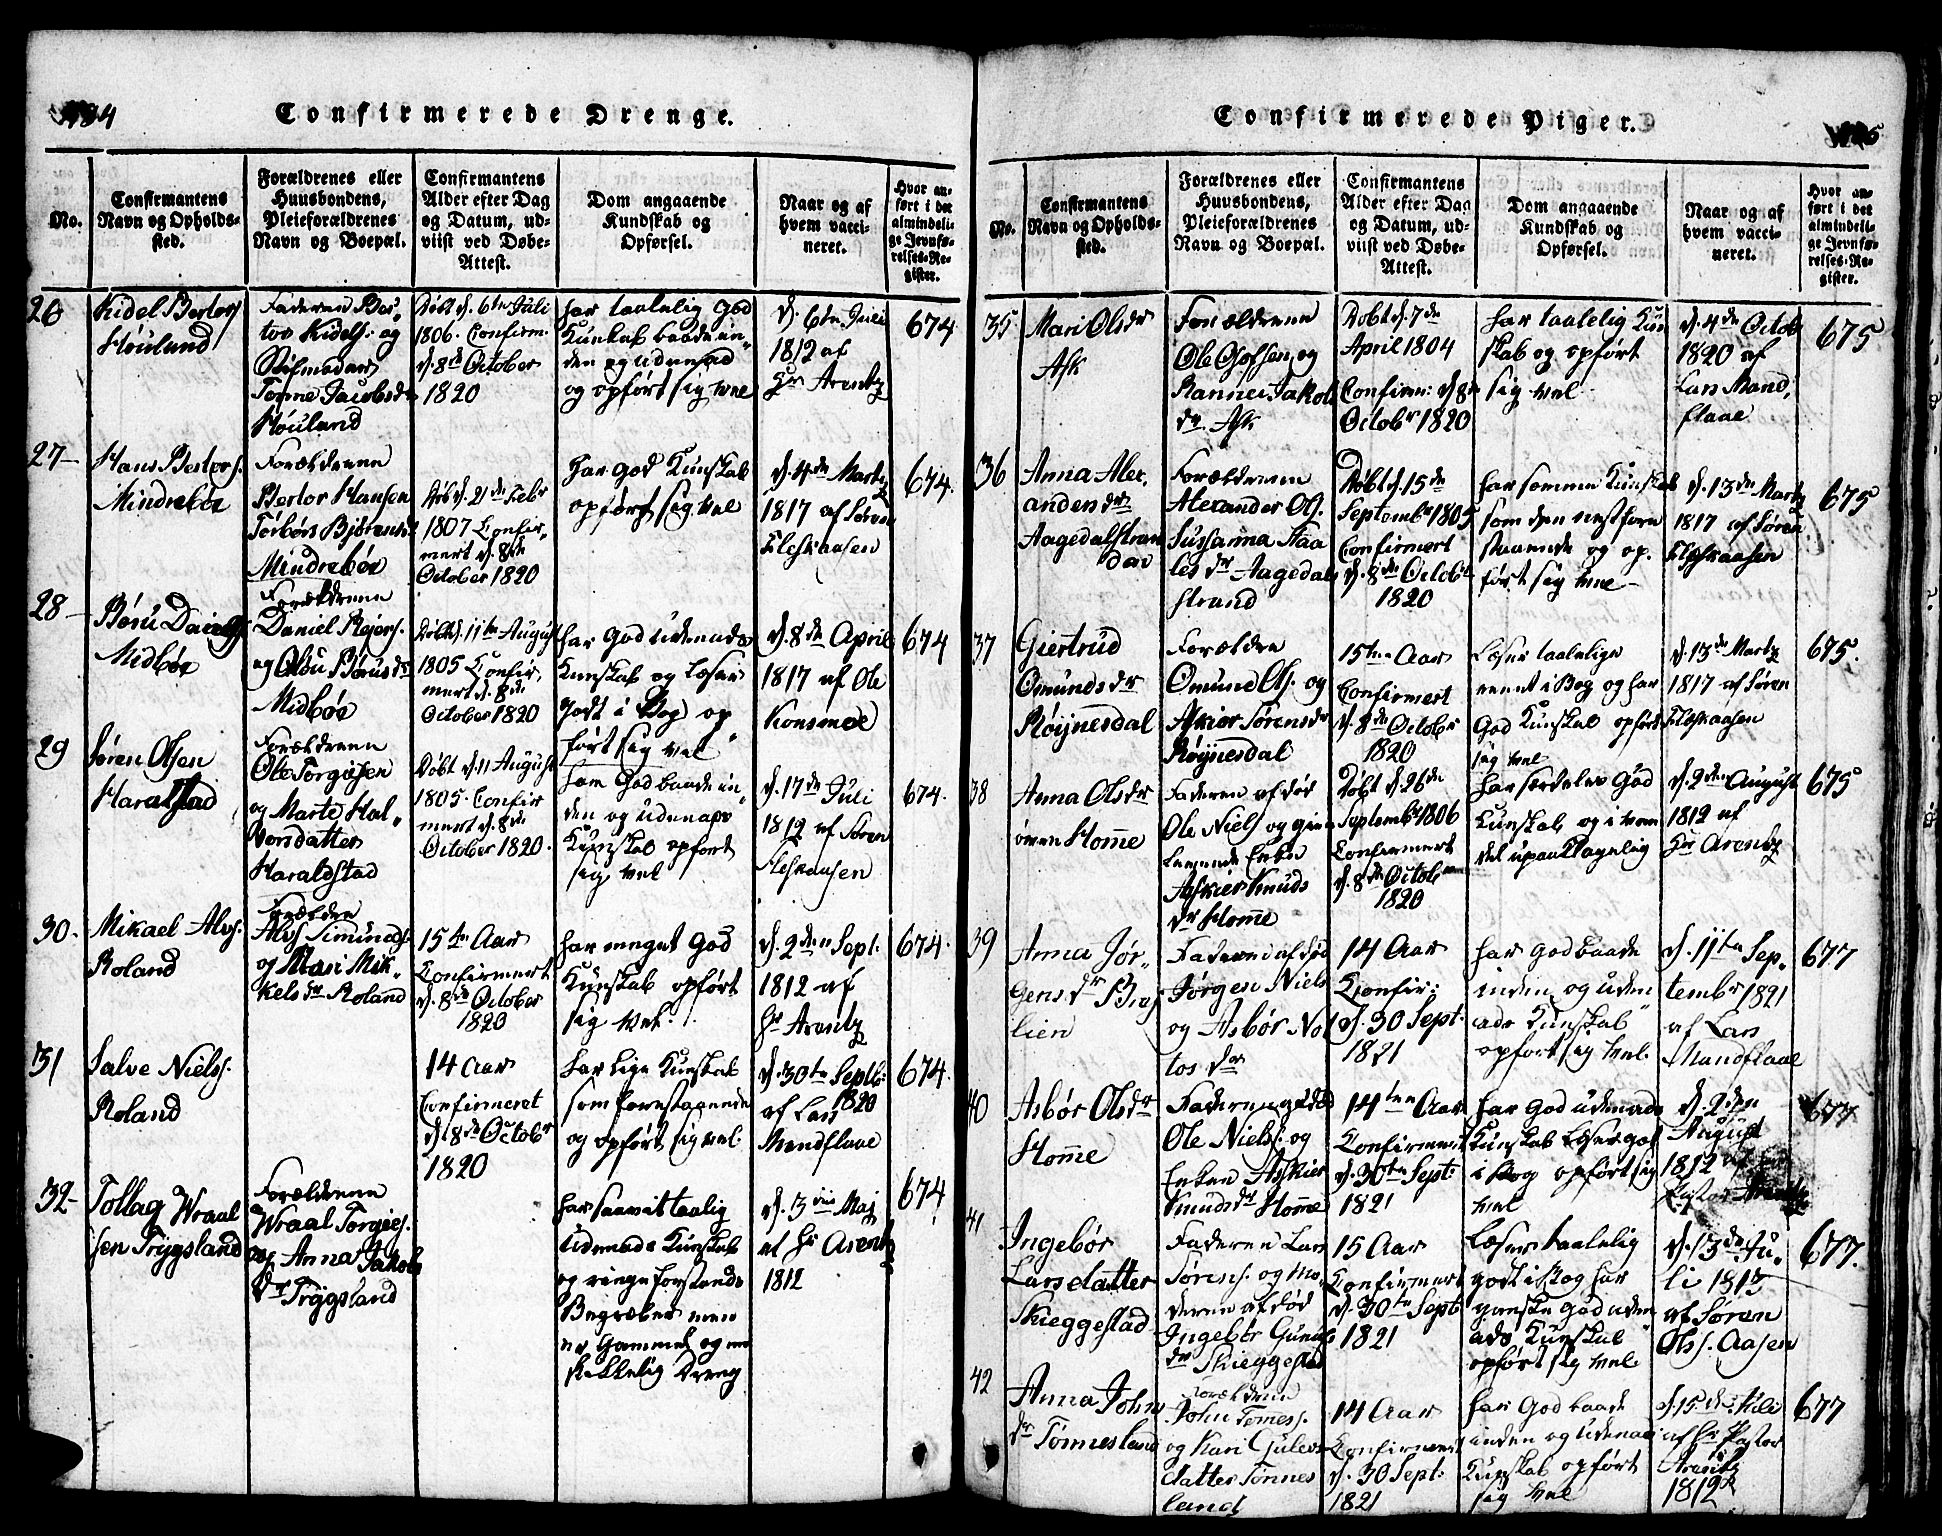 Confirmerede Drenge.
No.
Confirmantens
Navn og Opholds-
sted.
Forældrenes eller
Huusbondens,
Pleieforældrenes
Navn og Boepæl.
Confirmantens
Alder efter Dag
og Datum, ud-
viist ved Døbe-
Attest.
Dom angaaende
Kundskab og
Opførsel.
Naar og af
hvem vacci-
neret.
Hvor an-
ført i det
almindeli-
ge Jevnfø-
relses-Re-
gister.
26
Kidel Bertors
Høuland
Faderen Ber-
tor Kidels: og
Stifmoder
Tonne Jacobsdr
Høuland
Døbt d. 6te Juli
1806. Confirm.
d. 8de October
1820
har taalelig God
Kunskab baade in-
den og udenad
og opført sig vel
d. 6te Juli
1812 af
Hr Arentz
674
27
Hans Bertors.
Mindrebøe
Forældrene
Bertor Hansen
Mindrebøe
Døbt d. 21de Febr
1807 Confir-
mert d. 8de
October 1820
har God Kunskab
opført sig vel
d. 4de Martz
1817 af Søren
Fleskaasen
674.
28
Midbøe
Forældrene
Daniel Rejers.
og Olou Børusdr
Midbøe
Døbt d. 11te August
1805 Confir-
mert d. 8de
October 1820
har God udenads
Kunskab og Læser
godt i Bog op-
ført sig vel
d. 8de April
1817 af Ole
Konsmoe
674
29
Søren Olsen
Haralstad
Forældrene
Ole Torgiesen
og Marte Hal-
vorsdatter
Haraldstad
Døbt d. 11 August
1805. Confir
mert d. 8de
October 1820.
ham God baade in-
den og udenads
Kunskab opført
sig vel
d. 17de Juli
1812 af Søren
Fleskaasen
674.
30.
Mikael Alvs.
Roland
Forældre
Alvs Simunds.
og Mari Mik-
kels dr Roland
15te Aar
Confirmert
d. 8de October
1820
har meget God
Kunskab opført
sig vel.
d. 2den Sept.
1812 af
Hr Arentz
674.
31
Salve Niels.
Roland
14 Aar
Confirmeret
d. 8de Octobr
1820
har lige Kunskab
som forestaaende
og opført sig vel.
d. 30te Septbr
1820
af Lars
Mandflaae
674.
32
Tollag Wraal
sen Trygsland
Forældrene
Wraal Torgies.
og Anna Jakobs
dr Trygsland
har saavit taalig
Udenads Kunskab
og ringe Forstands
Begreber men
er Gammel og en
skikkelig Dreng
d. 3die Maj
af Hr Arentz
1812
674
Confirmerede Piger.
No.
Confirmantens
Navn og Opholds-
sted.
Forældrenes eller
Huusbondens,
Pleieforældrenes
Navn og Boepæl.
Confirmantens
Alder efter Dag
og Datum, ud-
viist ved Døbe-
Attest.
Dom angaaende
Kundskab og
Opførsel.
Naar og af
hvem vacci-
neret.
Hvor an-
ført i det
almindeli-
ge Jevnfø-
relses-Re-
gister.
35
Mari Olsdr
Ask
Forældrene
Ole Olsen og
Rannei Jakobs
dr Ask
Døbt d. 7de
April 1804
Confirm: d. 8de
Octobr 1820
har taalelig Kun
skab og opført
sig vel
d. 4de Octob
1820 af
Lars Mand,
flaae
675
36
Anna Alex,
anders dr
Aagedalstran
den
Forældrene
Alexander Ols.
Susanna Staa
les dr Aagedals
strand
Døbt d. 15de
Septembr 1805
Confirmert
d. 8de Octobr
1820
har somme Kunskab
som den nestfore
staaende og op,
ført sig vel
d. 13de Martz
1817 af Søren
Fleskaasen
675
37
Giertrud
Omunds dr
Røynesdal
Forældre
Omund Ols. og
Askier Sørensdr
Røynesdal
15ten Aar
Confirmert
d. 8de October
1820
Læser taalelige
reent i Bog og har
God Kunskab opført
sig vel
d. 13de Martz
1817 af Søren
Fleskaasen
675.
38
Anna Olsdr
øvren Homme
Faderen afdød
Ole Niels og
Levende Enke
Askier Knuds
dr Homme
Døbt d. 26de
Septembr 1806
Confirmert
d. 8de October
1820
har særdeles God
Kunskab og i
upaaklagelig
d. 2den August
1812 af
Hr Arentz
675
39
Anna Jør-
gens dr Bras
lien
Faderen afdød
Jørgen Niels
og Asbør Not
tos dr
14 Aar
Confir:
d. 30 Sept.
1821
har God baade
inden og uden
ads Kunskab
opført sig vel.
d. 11te Sep,
tembr 1821
af Lars
Mandflaae
677
40
Asbør Olsdr
Homme
Faderen afdød
Ole Niels: og
Enken Askier
Knudsdr Homme
14ten Aar
Confirmert
d. 30te Sept:
1821
har God udenads
Kunskab Læser godt
i Bog opført sig
vel
d. 2den
August
1812 af Hr
Pastor Arentz
677
41
Ingebør
Larsdatter
Skieggestad
Faderen Lars
Sørens. og Mo,
deren afdød
Ingebør Gunuls
dr Skieggestad
15 Aar
Confirmert
d. 30te Sept
1821
Læser taalelig
godt i Bog har
ganske God uden
ads Kunskab
opført sig vel.
d. 13de Ju,
li 1813
af Søren
Ols. Aasen
677.
42
Anna Johns
dr Tonnesland
Forældrene
John Tomess.
og Kari Gulevs
datter Tonnes
land
14 Aar
Confirmert
d. 30 Sept:
1821
har God baade
inden og udenads
Kunskab opført
sig vel
d. 15de Juli
af Hr Pastor
Arentz
1812
677